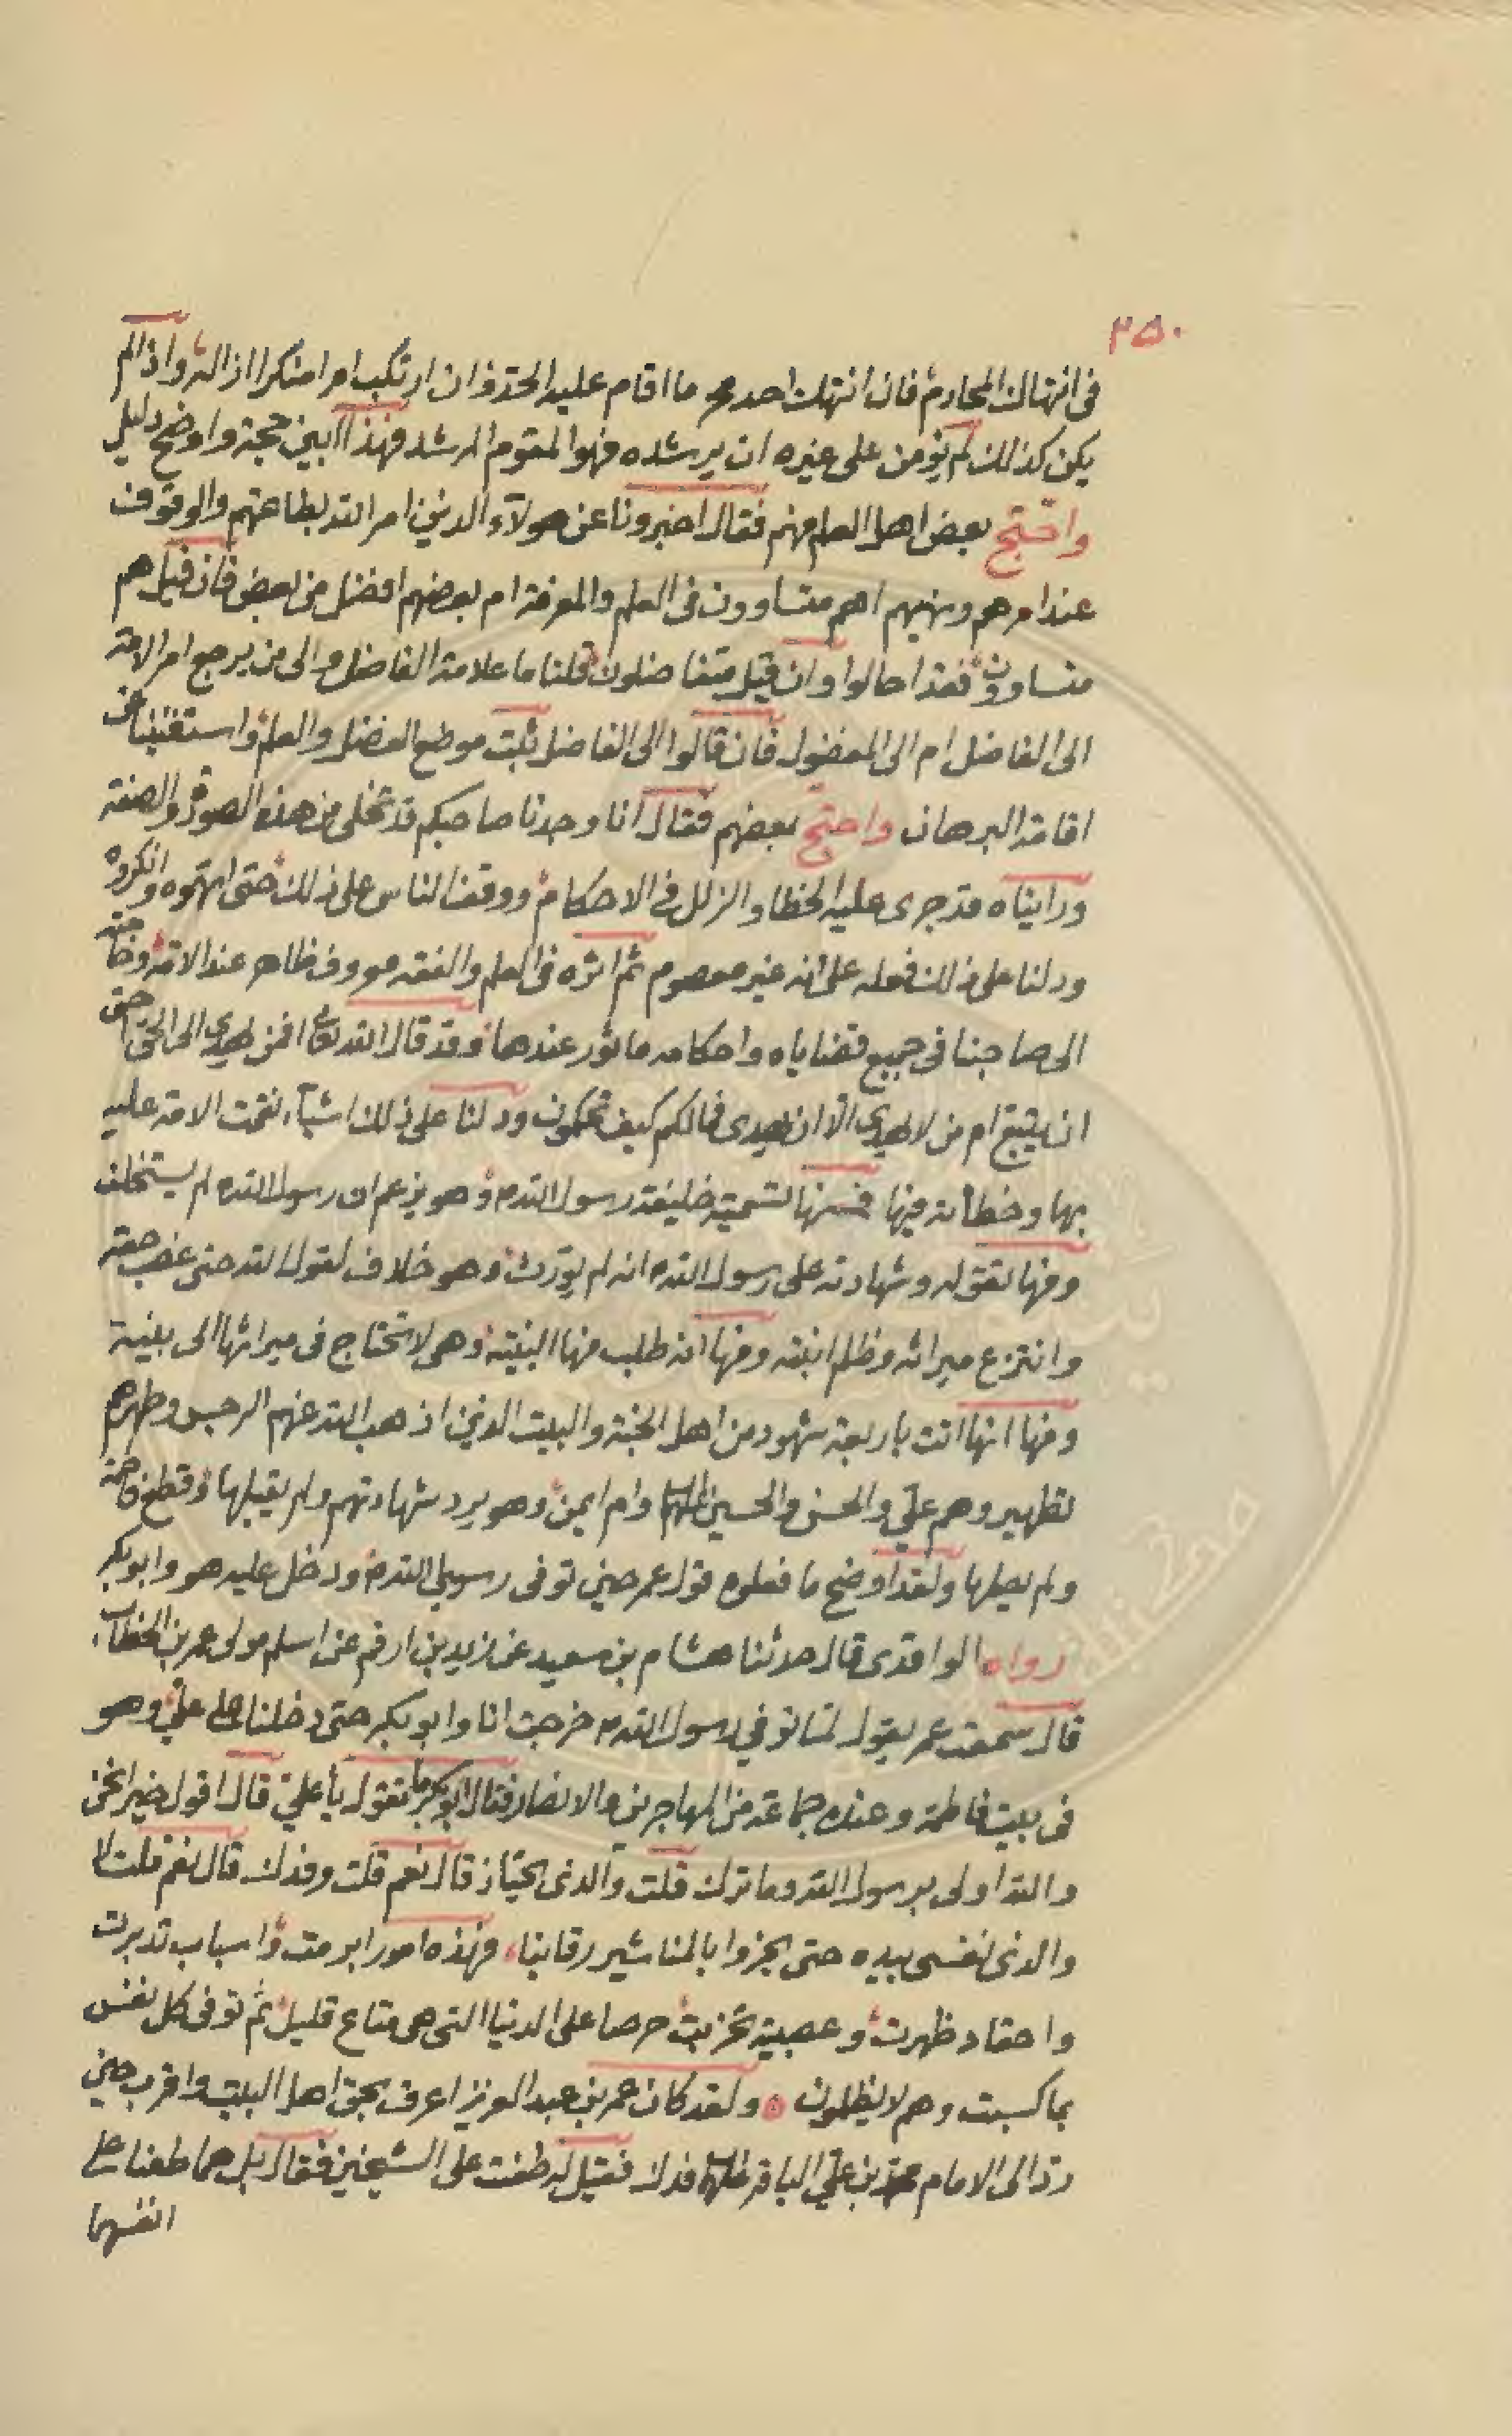 ٣٥٠
فى انتهاك المحارم فان انتهك احد محرما اقام عليه الحد وان ارتكب امرا منكرا ازاله واذا لم
يكن كذلك لم يؤمن على غيره ان يرشده فهو المقوم المرشد فهذا ابين حجة واوضح دليل
واحتج بعض اهل العلم منهم فقال اخبرونا عن هولآء الذين امر الله بطاعتهم والوقوف
عند امرهم ونهيهم اهم متساوون فى العلم والمعرفة ام بعضهم افضل من بعض فان قيل هم
متساوون فقد احالوا وان قيل متفاضلون قلنا ما علامة الفاضل والى من يرجع امر الامة
الى الفاضل ام الى المفضول فان قالوا الى الفاضل ثبت موضع الفضل والعلم واستغنينا عن
اقامة البرهان واحتج بعضهم فقال انا وجدنا صاحبكم قد تخلى من هذه الصورة والصفة
ورايناه قد جرى عليه الخطا والزلل فى الاحكام ووقف الناس على ذلك حتى اتهموه وانكروه
ودلنا على ذلك فعله على انه غير معصوم ثم اثره فى العلم والفقه معروف ظاهر عند الامة وحاجته
الى صاحبنا فى جميع قضاياه واحكامه ماثور عندها وقد قال الله تعالى افمن يهدى الى الحق احق
ان يتبع ام من لا يهدى الا ان يهدى فمالكم كيف تحكمون ودلنا على ذلك اشيآء نقمت الامة عليه
بها وخطأته فيها فمنها تسميته خليفة رسول الله م وهو يزعم ان رسول الله لم يستخلف
ومنها تقوله وشهادته على رسول الله انه لم يورث وهو خلاف لقول الله حتى غصب حقه
وانتزع ميراثه وظلم ابنته ومنها انه طلب منها البينة وهى لا تحتاج فى ميراثها الى بينة
ومنها انها اتت باربعة شهود من اهل الجنة والبيت الذين اذهب الله عنهم الرجس وطهرهم
تطهير وهم على والحسن والحسين وام ايمن وهو يرد شهادتهم ولم يقبلها وقطع فاطمة
ولم يصلها ولقد اوضح ما فعلوه قول عمر حين توفى رسول الله م ودخل عليه هو وابو بكر
رواه الواقدى قال حدثنا هشام بن سعيد عن زيد بن ارقم عن اسلم مولى عمر بن الخطاب
قال سمعت عمر يقول لما توفي رسول الله م خرجت انا وابو بكر حتى دخلنا على على وهو
فى بيت فاطمة وعنده جماعة من المهاجرين والانصار فقال ابو بكر ما تقول يا على قال اقول خيرا نحن
والله اولى برسول الله وما ترك قلت والذى بخيبر قال نعم قلت وفدك قال نعم قلت لا
والذى نفسى بيده حتى يجزوا بالمناشير رقابنا فهذه امور ابرمت واسباب تدبرت
واحقاد ظهرت وعصبية تحزبت حرصا على الدنيا التى هى متاع قليل ثم توفى كل نفس
بما كسبت وهم لا يظلمون ولقد كان عمر بن عبد العزيز اعرف بحق اهل البيت واقرب حين
رد الى الامام محمد بن على الباقر فدك فقيل له طعنت على الشيخين فقال بل هما طعنا على
انفسهما